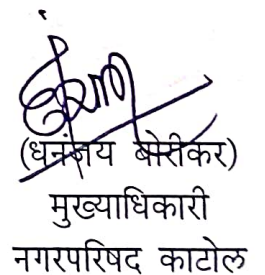 (धनंजय बोरीकर)
मुख्याधिकारी
नगरपरिषद काटोल